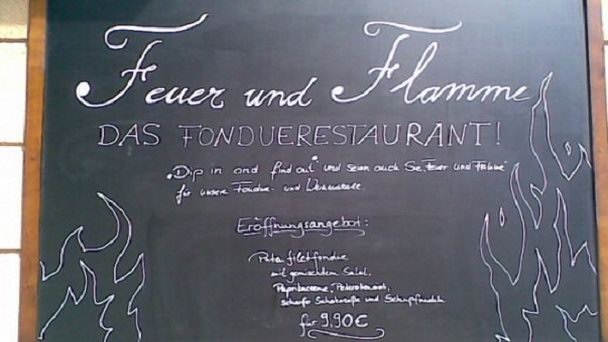 Feuer und Flamme
DAS FONDUERESTAURANT!
„Dip in and find out" und seien auch Sie „Feuer und Flamme"
für unsere Fondue- und
Eröffnungsangebot:
Putenfiletfondue
mit gemischtem Salat,
Paprikacreme,
scharfe und Schupfnudeln
für 9,90€